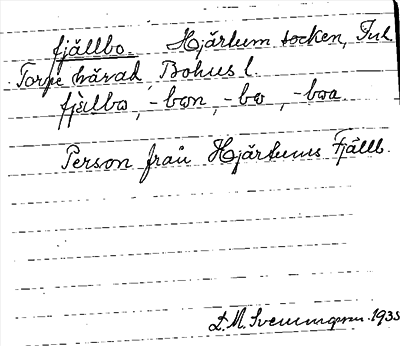 fjällbo. Hjärtum socken,
Torpe härad, Bohusl.
fjälbo, -bon, -bo, -boa.
Person från Hjärtums Fjällb.
D. M. 1935